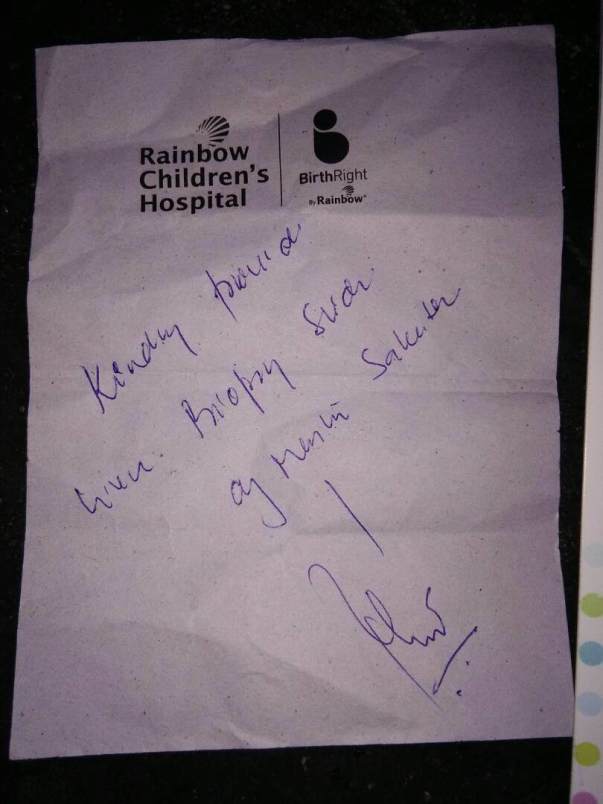 Rainbow
Children's
Hospital
BirthRight
By Rainbow®
Kindly provide
Liver Biopsy Slides
of